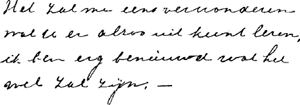 Het zal me eens verwonderen
wat je er alzoo uit kunt leren,
ik ben erg benieuwd wat het
wel zal zijn. —